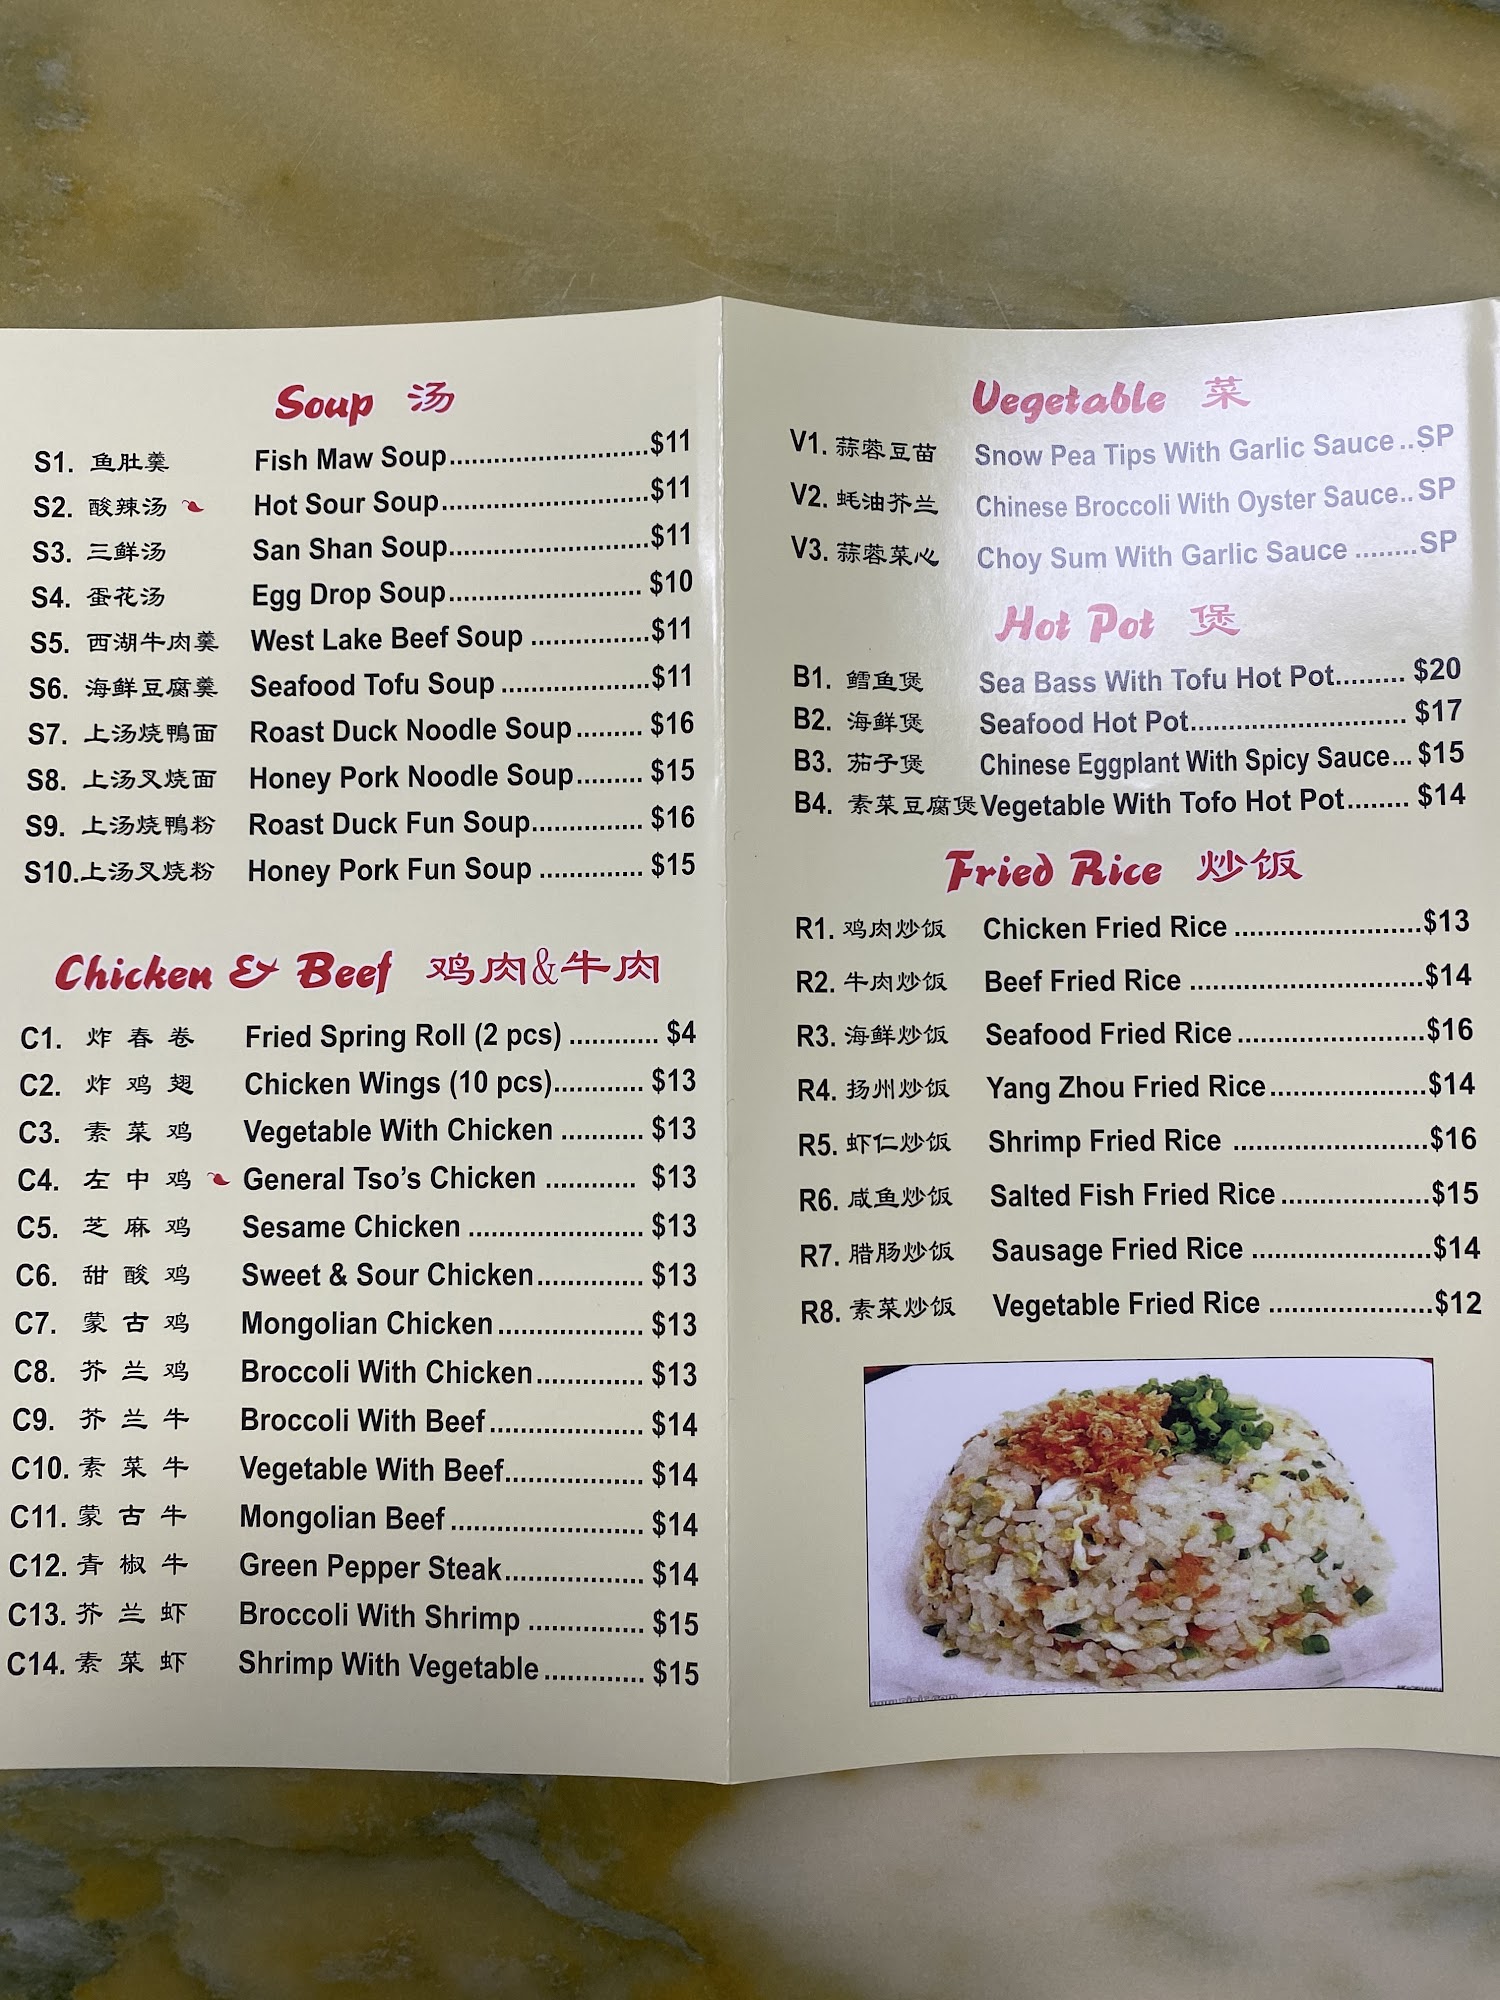 Soup 汤
S1. 鱼肚羹 Fish Maw Soup..........................$11
S2. 酸辣汤 Hot Sour Soup..........................$11
S3. 三鲜汤 San Shan Soup..........................$11
S4. 蛋花汤 Egg Drop Soup......................... $10
S5. 西湖牛肉羹 West Lake Beef Soup ...............$11
S6. 海鲜豆腐羹 Seafood Tofu Soup ...................$11
S7. 上汤烧鴨面 Roast Duck Noodle Soup......... $16
S8. 上汤叉烧面 Honey Pork Noodle Soup......... $15
S9. 上汤烧鴨粉 Roast Duck Fun Soup............... $16
S10.上汤叉烧粉 Honey Pork Fun Soup .............. $15
Chicken & Beef 鸡肉&牛肉
C1. 炸春卷 Fried Spring Roll (2 pcs) ............ $4
C2. 炸鸡翅 Chicken Wings (10 pcs)............ $13
C3. 素菜鸡 Vegetable With Chicken ........... $13
C4. 左中鸡 General Tso’s Chicken ............ $13
C5. 芝麻鸡 Sesame Chicken ....................... $13
C6. 甜酸鸡 Sweet & Sour Chicken.............. $13
C7. 蒙古鸡 Mongolian Chicken................... $13
C8. 芥兰鸡 Broccoli With Chicken.............. $13
C9. 芥兰牛 Broccoli With Beef.................... $14
C10. 素菜牛 Vegetable With Beef.................. $14
C11. 蒙古牛 Mongolian Beef ......................... $14
C12. 青椒牛 Green Pepper Steak.................. $14
C13. 芥兰虾 Broccoli With Shrimp ............... $15
C14. 素菜虾 Shrimp With Vegetable............. $15
Vegetable 菜
V1. 蒜蓉豆苗 Snow Pea Tips With Garlic Sauce..SP
V2. 蚝油芥兰 Chinese Broccoli With Oyster Sauce.. SP
V3. 蒜蓉菜心 Choy Sum With Garlic Sauce ........SP
Hot Pot 煲
B1. 鳕鱼煲 Sea Bass With Tofu Hot Pot......... $20
B2. 海鲜煲 Seafood Hot Pot............................ $17
B3. 茄子煲 Chinese Eggplant With Spicy Sauce... $15
B4. 素菜豆腐煲 Vegetable With Tofo Hot Pot........ $14
Fried Rice 炒饭
R1. 鸡肉炒饭 Chicken Fried Rice ........................$13
R2. 牛肉炒饭 Beef Fried Rice ..............................$14
R3. 海鲜炒饭 Seafood Fried Rice........................$16
R4. 扬州炒饭 Yang Zhou Fried Rice....................$14
R5. 虾仁炒饭 Shrimp Fried Rice .........................$16
R6. 咸鱼炒饭 Salted Fish Fried Rice...................$15
R7. 腊肠炒饭 Sausage Fried Rice .......................$14
R8. 素菜炒饭 Vegetable Fried Rice .....................$12